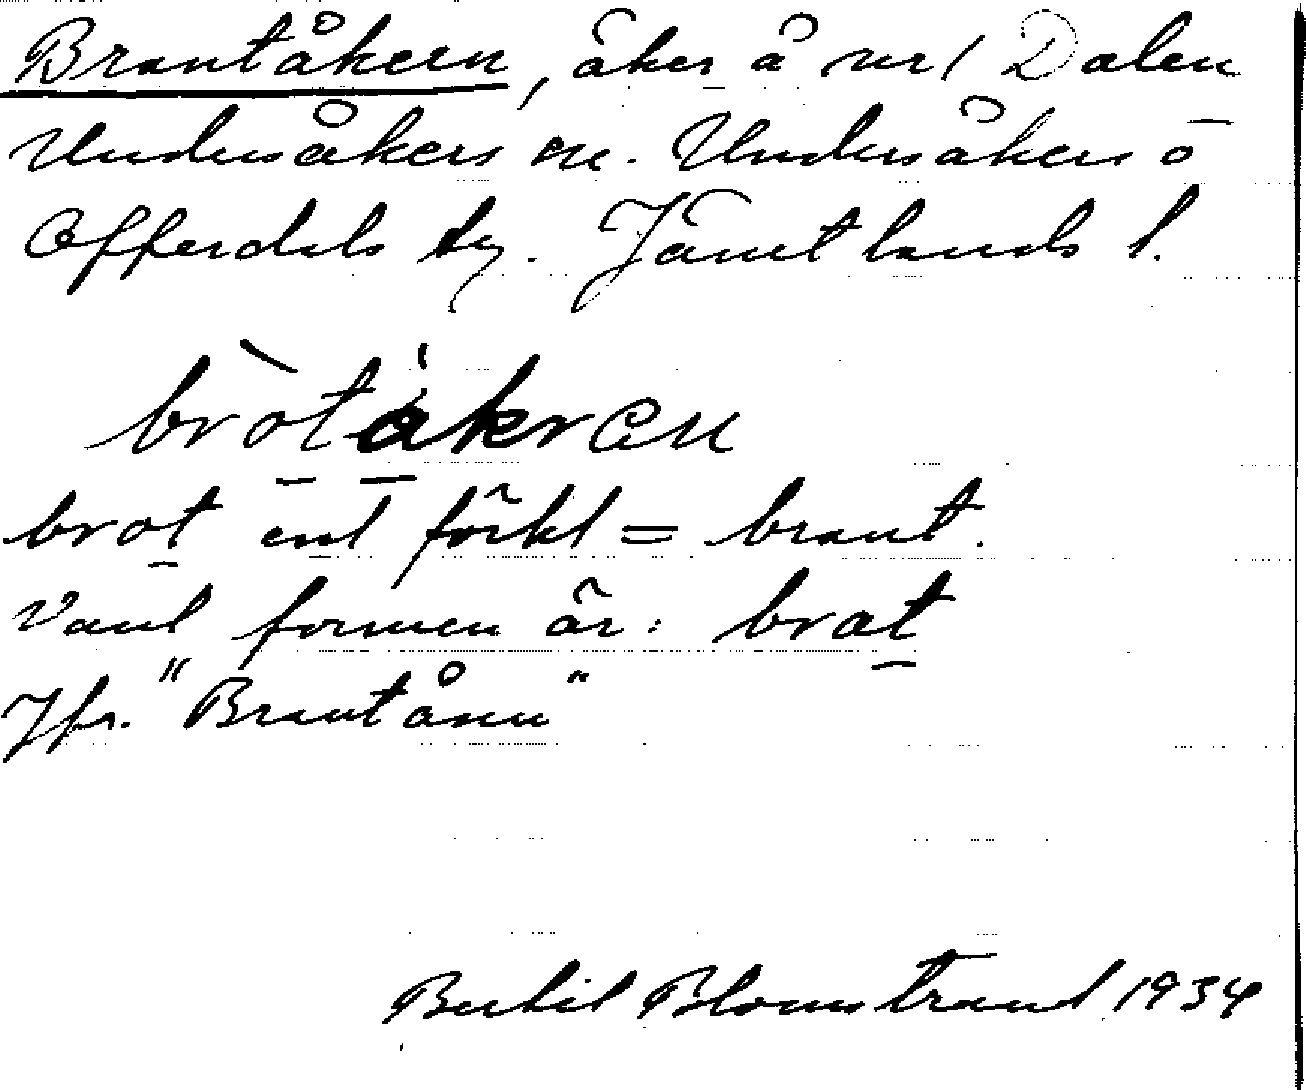 Brantåkern, åker å nr 1 Dalen
Undersåkers sn. Undersåkers o
Offerdals tg. Jämtlands l.
bròtákren
brot enl förkl = brant.
Vanl formen är: brat
Jfr. "Brantåsen"
Bertil Blomstrand 1934